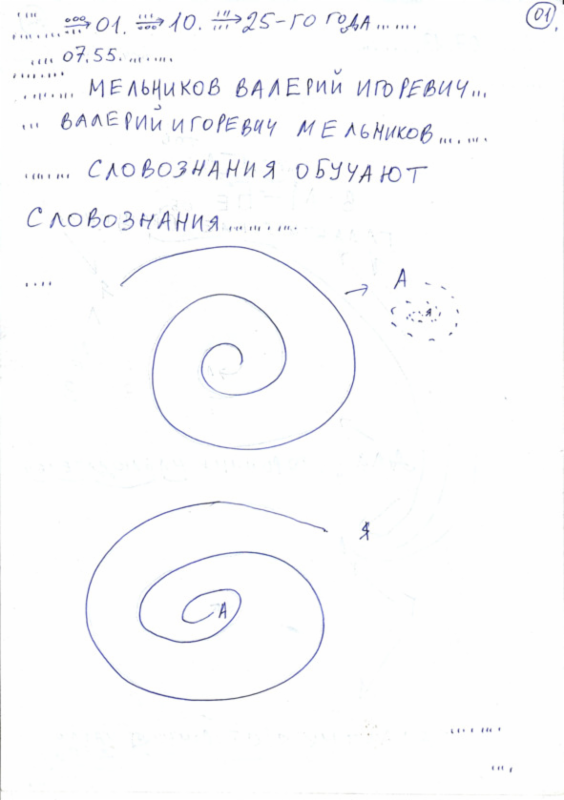 01.
...... ⇒ 01. ⇒ 10. ⇒ 25-ГО ГОДА ......
.... 07.55. .......
........ МЕЛЬНИКОВ ВАЛЕРИЙ ИГОРЕВИЧ...
... ВАЛЕРИЙ ИГОРЕВИЧ МЕЛЬНИКОВ.......
....... СЛОВОЗНАНИЯ ОБУЧАЮТ
СЛОВОЗНАНИЯ..........
.... → А
Я
Я
А